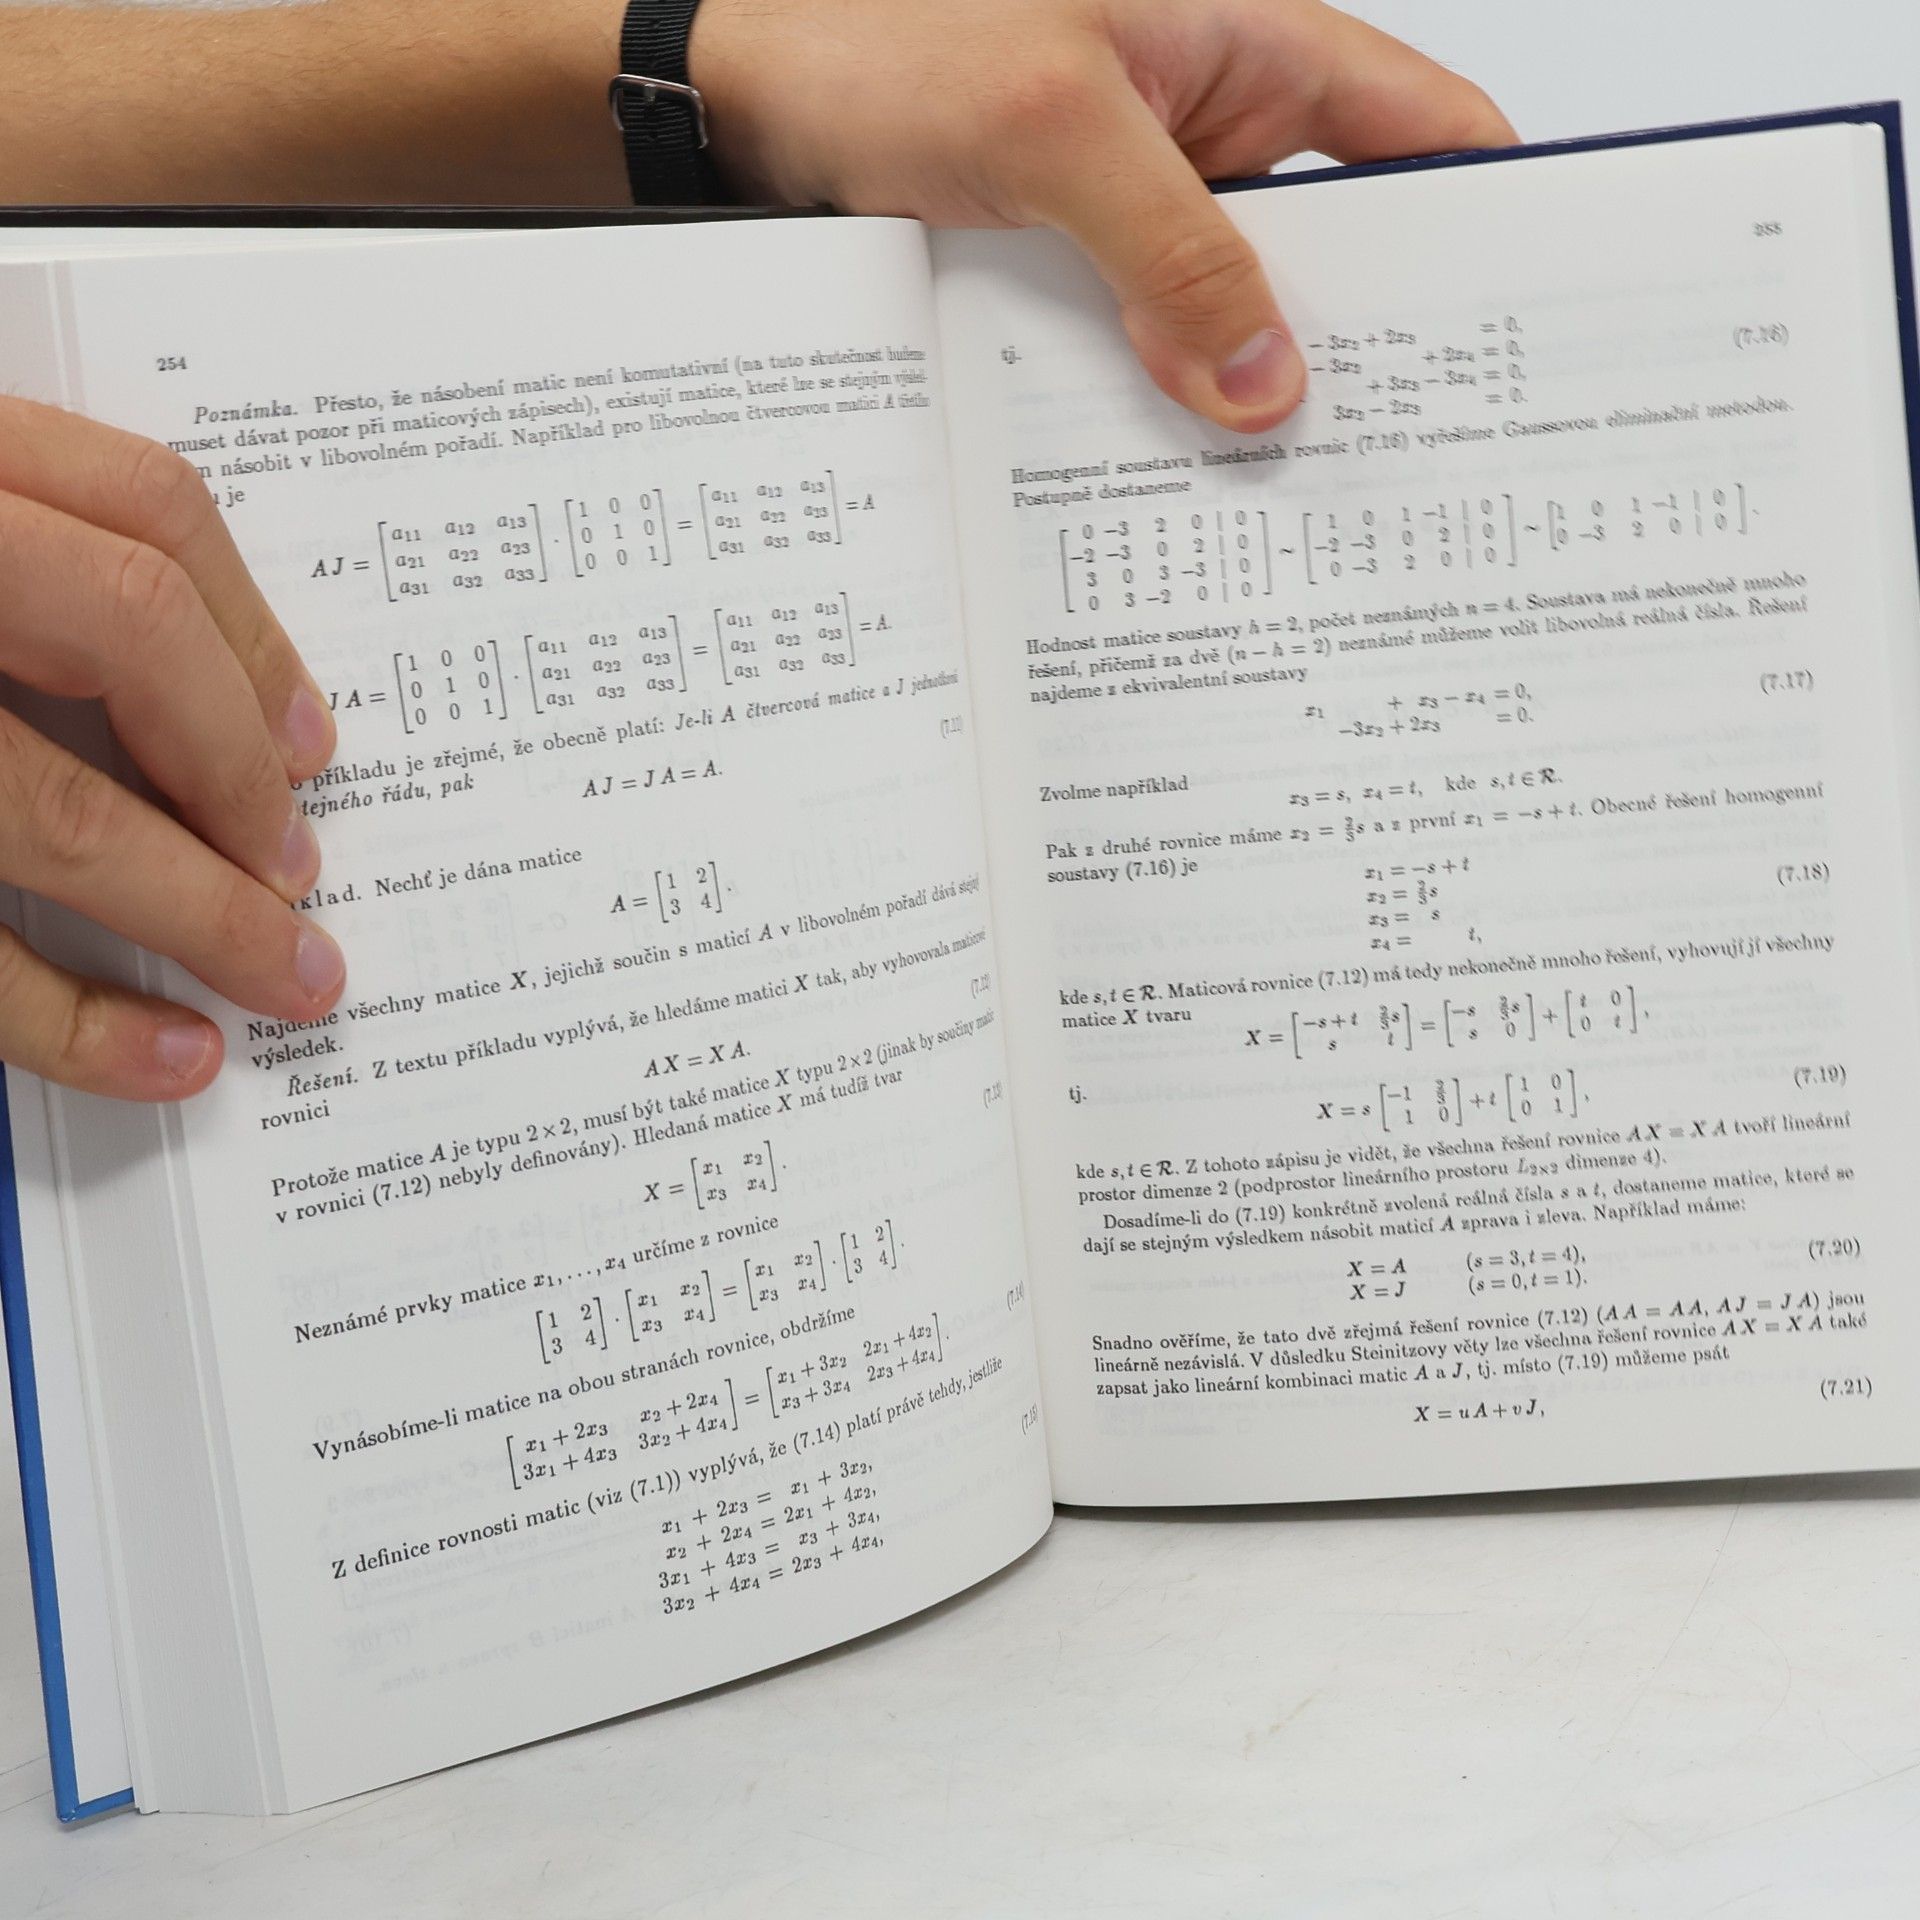 254
Poznámka. Přesto, že násobení matic není komutativní (na tuto skutečnost budeme
muset dávat pozor při maticových zápisech), existují matice, které lze se stejným výsled-
násobit v libovolném pořadí. Například pro libovolnou čtvercovou matici A třetího
je
A J = [a11 a12 a13; a21 a22 a23; a31 a32 a33] · [1 0 0; 0 1 0; 0 0 1] = [a11 a12 a13; a21 a22 a23; a31 a32 a33] = A
J A = [1 0 0; 0 1 0; 0 0 1] · [a11 a12 a13; a21 a22 a23; a31 a32 a33] = [a11 a12 a13; a21 a22 a23; a31 a32 a33] = A.
příkladu je zřejmé, že obecně platí: Je-li A čtvercová matice a J jednotková
tejného řádu, pak
A J = J A = A. (7.11)
klad. Nechť je dána matice
A = [1 2; 3 4].
Najdeme všechny matice X, jejichž součin s maticí A v libovolném pořadí dává stejný
výsledek.
Řešení. Z textu příkladu vyplývá, že hledáme matici X tak, aby vyhovovala maticové
rovnici
A X = X A. (7.12)
Protože matice A je typu 2 × 2, musí být také matice X typu 2 × 2 (jinak by součiny matic
v rovnici (7.12) nebyly definovány). Hledaná matice X má tudíž tvar
X = [x1 x2; x3 x4]. (7.13)
Neznámé prvky matice x1, . . . , x4 určíme z rovnice
[1 2; 3 4] · [x1 x2; x3 x4] = [x1 x2; x3 x4] · [1 2; 3 4].
Vynásobíme-li matice na obou stranách rovnice, obdržíme
[x1 + 2x3 x2 + 2x4; 3x1 + 4x3 3x2 + 4x4] = [x1 + 3x2 2x1 + 4x2; x3 + 3x4 2x3 + 4x4]. (7.14)
Z definice rovnosti matic (viz (7.1)) vyplývá, že (7.14) platí právě tehdy, jestliže
x1 + 2x3 = x1 + 3x2, (7.15)
x2 + 2x4 = 2x1 + 4x2,
3x1 + 4x3 = x3 + 3x4,
3x2 + 4x4 = 2x3 + 4x4,
255
tj.
− 3x2 + 2x3 = 0,
− 3x2 + 2x4 = 0, (7.16)
+ 3x3 − 3x4 = 0,
3x2 − 2x3 = 0.
Homogenní soustavu lineárních rovnic (7.16) vyřešíme Gaussovou eliminační metodou.
Postupně dostaneme
[0 −3 2 0 | 0; −2 −3 0 2 | 0; 3 0 3 −3 | 0; 0 3 −2 0 | 0] ~ [1 0 1 −1 | 0; −2 −3 0 2 | 0; 0 −3 2 0 | 0] ~ [1 0 1 −1 | 0; 0 −3 2 0 | 0].
Hodnost matice soustavy h = 2, počet neznámých n = 4. Soustava má nekonečně mnoho
řešení, přičemž za dvě (n − h = 2) neznámé můžeme volit libovolná reálná čísla. Řešení
najdeme z ekvivalentní soustavy
x1 + x3 − x4 = 0, (7.17)
−3x2 + 2x3 = 0.
Zvolme například
x3 = s, x4 = t, kde s, t ∈ R.
Pak z druhé rovnice máme x2 = 2/3 s a z první x1 = −s + t. Obecné řešení homogenní
soustavy (7.16) je
x1 = −s + t
x2 = 2/3 s (7.18)
x3 = s
x4 = t,
kde s, t ∈ R. Maticová rovnice (7.12) má tedy nekonečně mnoho řešení, vyhovují jí všechny
matice X tvaru
X = [−s + t 2/3 s; s t] = [−s 2/3 s; s 0] + [t 0; 0 t],
tj.
X = s [−1 2/3; 1 0] + t [1 0; 0 1], (7.19)
kde s, t ∈ R. Z tohoto zápisu je vidět, že všechna řešení rovnice A X = X A tvoří lineární
prostor dimenze 2 (podprostor lineárního prostoru L2×2 dimenze 4).
Dosadíme-li do (7.19) konkrétně zvolená reálná čísla s a t, dostaneme matice, které se
dají se stejným výsledkem násobit maticí A zprava i zleva. Například máme:
X = A (s = 3, t = 4), (7.20)
X = J (s = 0, t = 1).
Snadno ověříme, že tato dvě zřejmá řešení rovnice (7.12) (A A = A A, A J = J A) jsou
lineárně nezávislá. V důsledku Steinitzovy věty lze všechna řešení rovnice A X = X A také
zapsat jako lineární kombinaci matic A a J, tj. místo (7.19) můžeme psát
X = u A + v J, (7.21)